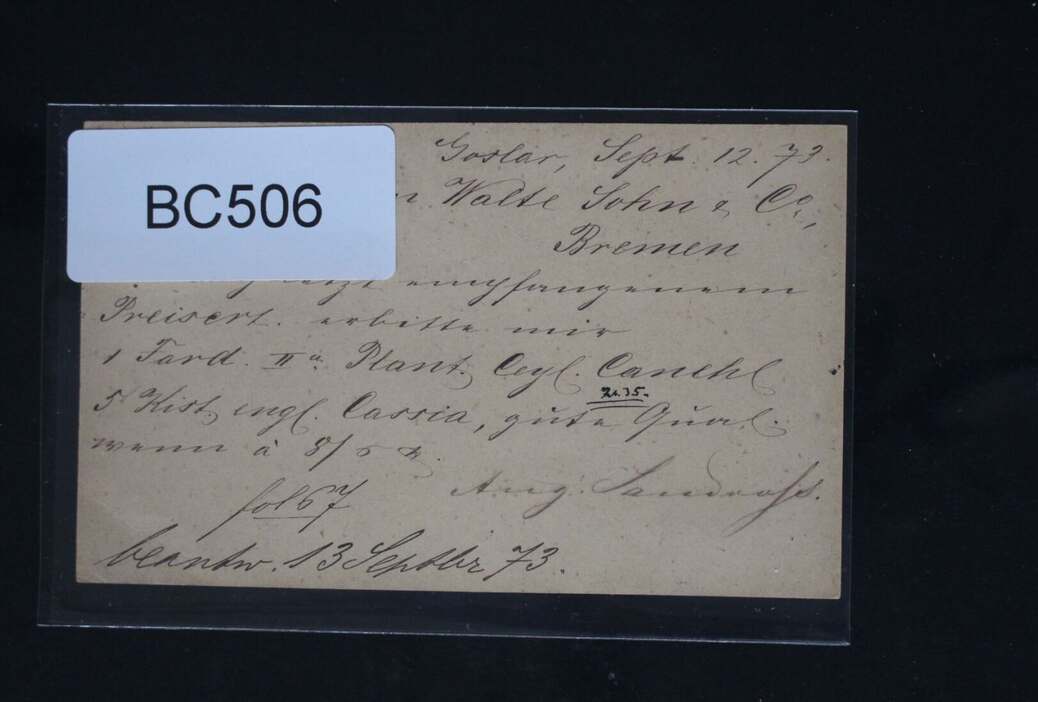 BC506
Goslar, Sept. 12. 73.
Walte Sohn & Co,
Bremen
empfangenem
Preisert. erbitte mir
1 Fard. IIa Plant. Ceyl. Canehl
5 Kist. engl. Cassia, gute Qual.
wenn à 8/
Aug.
fol 67
beantw. 13 Septbr 73.